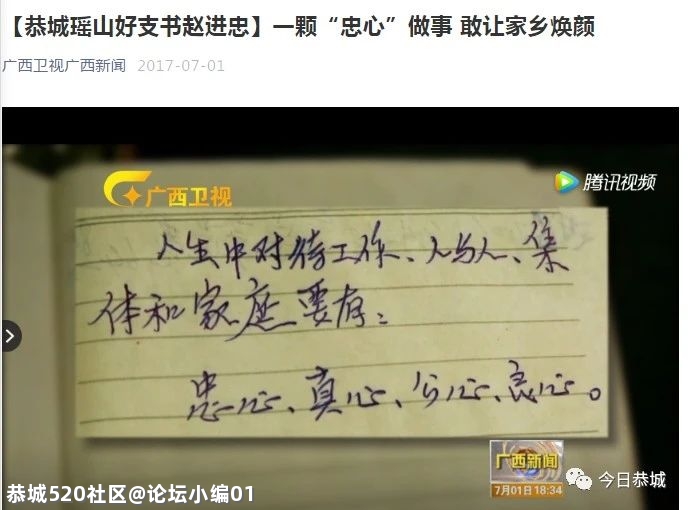 【恭城瑶山好支书赵进忠】一颗“忠心”做事 敢让家乡焕颜
广西卫视广西新闻 2017-07-01
广西卫视
腾讯视频
人生中对待工作、人与人、集
体和家庭要存：
忠心、真心、公心、良心。
广西新闻
7月01日 18:34
今日恭城
恭城520社区@论坛小编01